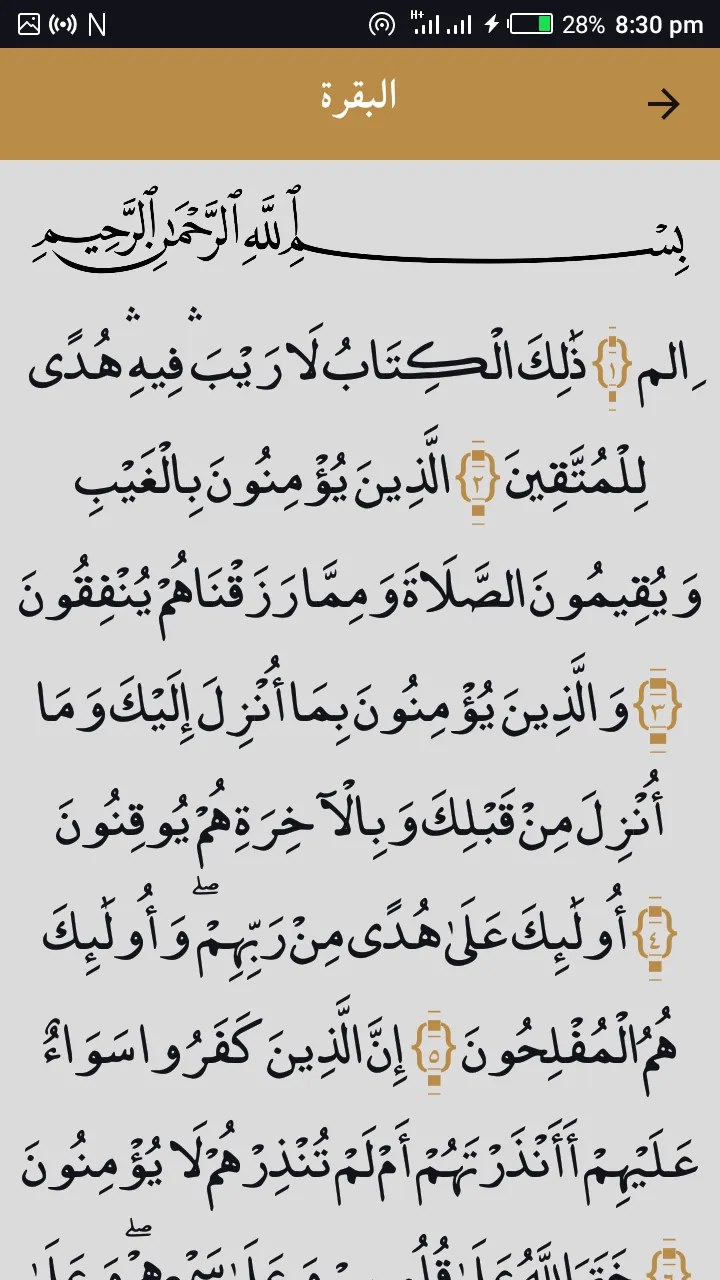 28% 8:30 pm
البقرة
بِسْمِ ٱللَّهِ ٱلرَّحْمَٰنِ ٱلرَّحِيمِ
الم ﴿١﴾ ذَٰلِكَ الْكِتَابُ لَا رَيْبَ ۛ فِيهِ ۛ هُدًى
لِلْمُتَّقِينَ ﴿٢﴾ الَّذِينَ يُؤْمِنُونَ بِالْغَيْبِ
وَيُقِيمُونَ الصَّلَاةَ وَمِمَّا رَزَقْنَاهُمْ يُنْفِقُونَ
﴿٣﴾ وَالَّذِينَ يُؤْمِنُونَ بِمَا أُنْزِلَ إِلَيْكَ وَمَا
أُنْزِلَ مِنْ قَبْلِكَ وَبِالْآخِرَةِ هُمْ يُوقِنُونَ
﴿٤﴾ أُولَٰئِكَ عَلَىٰ هُدًى مِنْ رَبِّهِمْ ۖ وَأُولَٰئِكَ
هُمُ الْمُفْلِحُونَ ﴿٥﴾ إِنَّ الَّذِينَ كَفَرُوا سَوَاءٌ
عَلَيْهِمْ أَأَنْذَرْتَهُمْ أَمْ لَمْ تُنْذِرْهُمْ لَا يُؤْمِنُونَ